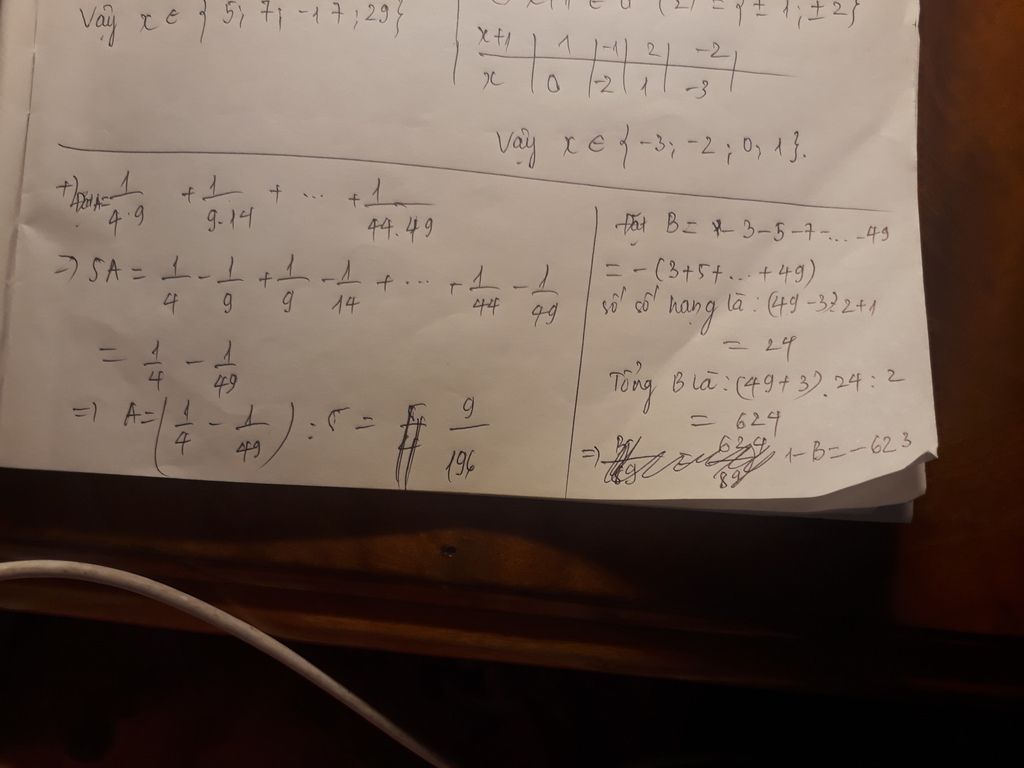 Vậy x ∈ { 5; 7; -17; 29}
(2) = {±1; ±2}
x+1 | 1 | -1 | 2 | -2 |
x | 0 | -2 | 1 | -3 |
Vậy x ∈ {-3; -2; 0; 1}.
+) Đặt A= 1/4.9 + 1/9.14 + ... + 1/44.49
=> 5A = 1/4 - 1/9 + 1/9 - 1/14 + ... + 1/44 - 1/49
= 1/4 - 1/49
=> A = (1/4 - 1/49) : 5 = 9/196
Đặt B = 3 - 5 - 7 - ... - 49
= - (3+5+ ... + 49)
Số số hạng là: (49-3):2+1
= 24
Tổng B là: (49+3). 24 : 2
= 624
=> 1-B = -623